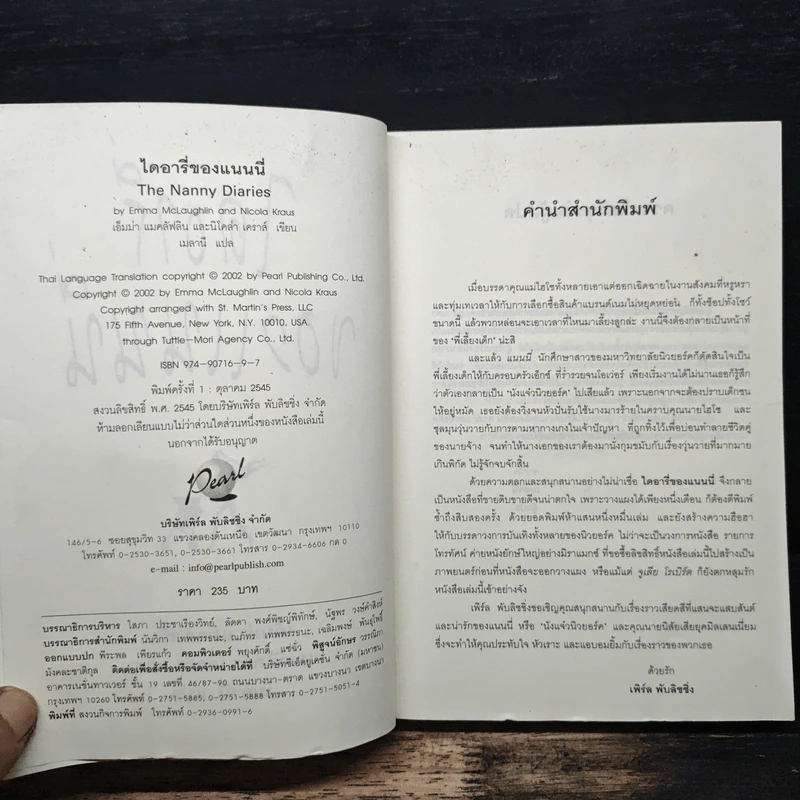 ไดอารี่ของแนนนี่
The Nanny Diaries
by Emma McLaughlin and Nicola Kraus
เอ็มม่า แมคลัฟลิน และนิโคล่า เคราส์ เขียน
เมลานี แปล
Thai Language Translation copyright © 2002 by Pearl Publishing Co., Ltd.
Copyright © 2002 by Emma McLaughlin and Nicola Kraus
Copyright arranged with St. Martin's Press, LLC
175 Fifth Avenue, New York, N.Y. 10010, USA.
through Tuttle-Mori Agency Co., Ltd.
ISBN 974-90716-9-7
พิมพ์ครั้งที่ 1 : ตุลาคม 2545
สงวนลิขสิทธิ์ พ.ศ. 2545 โดยบริษัทเพิร์ล พับลิชชิ่ง จำกัด
ห้ามลอกเลียนแบบไม่ว่าส่วนใดส่วนหนึ่งของหนังสือเล่มนี้
นอกจากได้รับอนุญาต
Pearl
บริษัทเพิร์ล พับลิชชิ่ง จำกัด
146/5-6 ซอยสุขุมวิท 33 แขวงคลองตันเหนือ เขตวัฒนา กรุงเทพฯ 10110
โทรศัพท์ 0-2530-3651, 0-2530-3661 โทรสาร 0-2934-6606 กด 0
e-mail : info@pearlpublish.com
ราคา 235 บาท
บรรณาธิการบริหาร โสภา ประชาเรืองวิทย์, ลัดดา พงศ์พิชญ์พิทักษ์, นัฐพร วงษ์คำสิงห์
บรรณาธิการสำนักพิมพ์ นันวิกา เทพพรรธนะ, ณภัทร เทพพรรธนะ, เฉลิมพงษ์ พันธุ์โพธิ์
ออกแบบปก พีระพล เพียรแก้ว คอมพิวเตอร์ พยุงศักดิ์ แซ่ฉั่ว พิสูจน์อักษร วรรณิภา
มังคละชาติกุล ติดต่อเพื่อสั่งซื้อหรือจัดจำหน่ายได้ที่ บริษัทซีเอ็ดยูเคชั่น จำกัด (มหาชน)
อาคารเนชั่นทาวเวอร์ ชั้น 19 เลขที่ 46/87-90 ถนนบางนา-ตราด แขวงบางนา เขตบางนา
กรุงเทพฯ 10260 โทรศัพท์ 0-2751-5885, 0-2751-5888 โทรสาร 0-2751-5051-4
พิมพ์ที่ สงวนกิจการพิมพ์ โทรศัพท์ 0-2936-0991-6
คำนำสำนักพิมพ์
เมื่อบรรดาคุณแม่ไฮโซทั้งหลายเอาแต่ออกเฉิดฉายในงานสังคมที่หรูหรา
และทุ่มเทเวลาให้กับการเลือกซื้อสินค้าแบรนด์เนมไม่หยุดหย่อน ก็ทั้งช็อปทั้งโชว์
ขนาดนี้ แล้วพวกหล่อนจะเอาเวลาที่ไหนมาเลี้ยงลูกล่ะ งานนี้จึงต้องกลายเป็นหน้าที่
ของ 'พี่เลี้ยงเด็ก' น่ะสิ
และแล้ว แนนนี่ นักศึกษาสาวของมหาวิทยาลัยนิวยอร์คก็ตัดสินใจเป็น
พี่เลี้ยงเด็กให้กับครอบครัวเอ็กซ์ ที่ร่ำรวยจนโอเวอร์ เพียงเริ่มงานได้ไม่นานเธอก็รู้สึก
ว่าตัวเองกลายเป็น 'นังแจ๋วนิวยอร์ค' ไปเสียแล้ว เพราะนอกจากจะต้องปราบเด็กซน
ให้อยู่หมัด เธอยังต้องวิ่งจนหัวปั่นรับใช้นางมารร้ายในคราบคุณนายไฮโซ และ
ชุลมุนวุ่นวายกับการตามหากางเกงในเจ้าปัญหา ที่ถูกทิ้งไว้เพื่อบ่อนทำลายชีวิตคู่
ของนายจ้าง จนทำให้นางเอกของเราต้องมานั่งกุมขมับกับเรื่องวุ่นวายที่มากมาย
เกินพิกัด ไม่รู้จักจบจักสิ้น
ด้วยความตลกและสนุกสนานอย่างไม่น่าเชื่อ ไดอารี่ของแนนนี่ จึงกลาย
เป็นหนังสือที่ขายดิบขายดีจนน่าตกใจ เพราะวางแผงได้เพียงหนึ่งเดือน ก็ต้องตีพิมพ์
ซ้ำถึงสิบสองครั้ง ด้วยยอดพิมพ์ห้าแสนหนึ่งหมื่นเล่ม และยังสร้างความฮือฮา
ให้กับบรรดาวงการบันเทิงทั้งหลายของนิวยอร์ค ไม่ว่าจะเป็นวงการหนังสือ รายการ
โทรทัศน์ ค่ายหนังยักษ์ใหญ่อย่างมิราแมกซ์ ที่ขอซื้อลิขสิทธิ์หนังสือเล่มนี้ไปสร้างเป็น
ภาพยนตร์ก่อนที่หนังสือจะออกวางแผง หรือแม้แต่ จูเลีย โรเบิร์ต ก็ยังตกหลุมรัก
หนังสือเล่มนี้เข้าอย่างจัง
เพิร์ล พับลิชชิ่งขอเชิญคุณสนุกสนานกับเรื่องราวเสียดสีที่แสนจะแสบสันต์
และน่ารักของแนนนี่ หรือ 'นังแจ๋วนิวยอร์ค' และคุณนายนิสัยเสียยุคมิลเลนเนี่ยม
ซึ่งจะทำให้คุณประทับใจ หัวเราะ และแอบอมยิ้มกับเรื่องราวของพวกเธอ
ด้วยรัก
เพิร์ล พับลิชชิ่ง